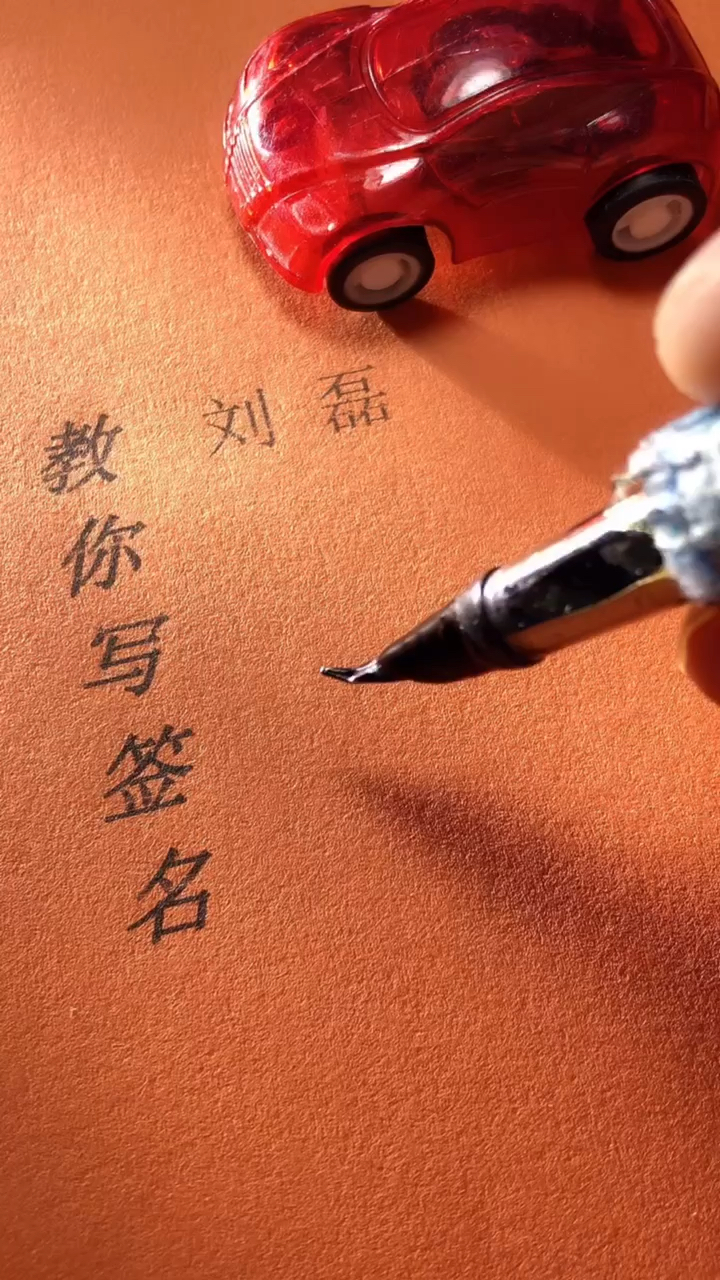 教你写签名
刘磊